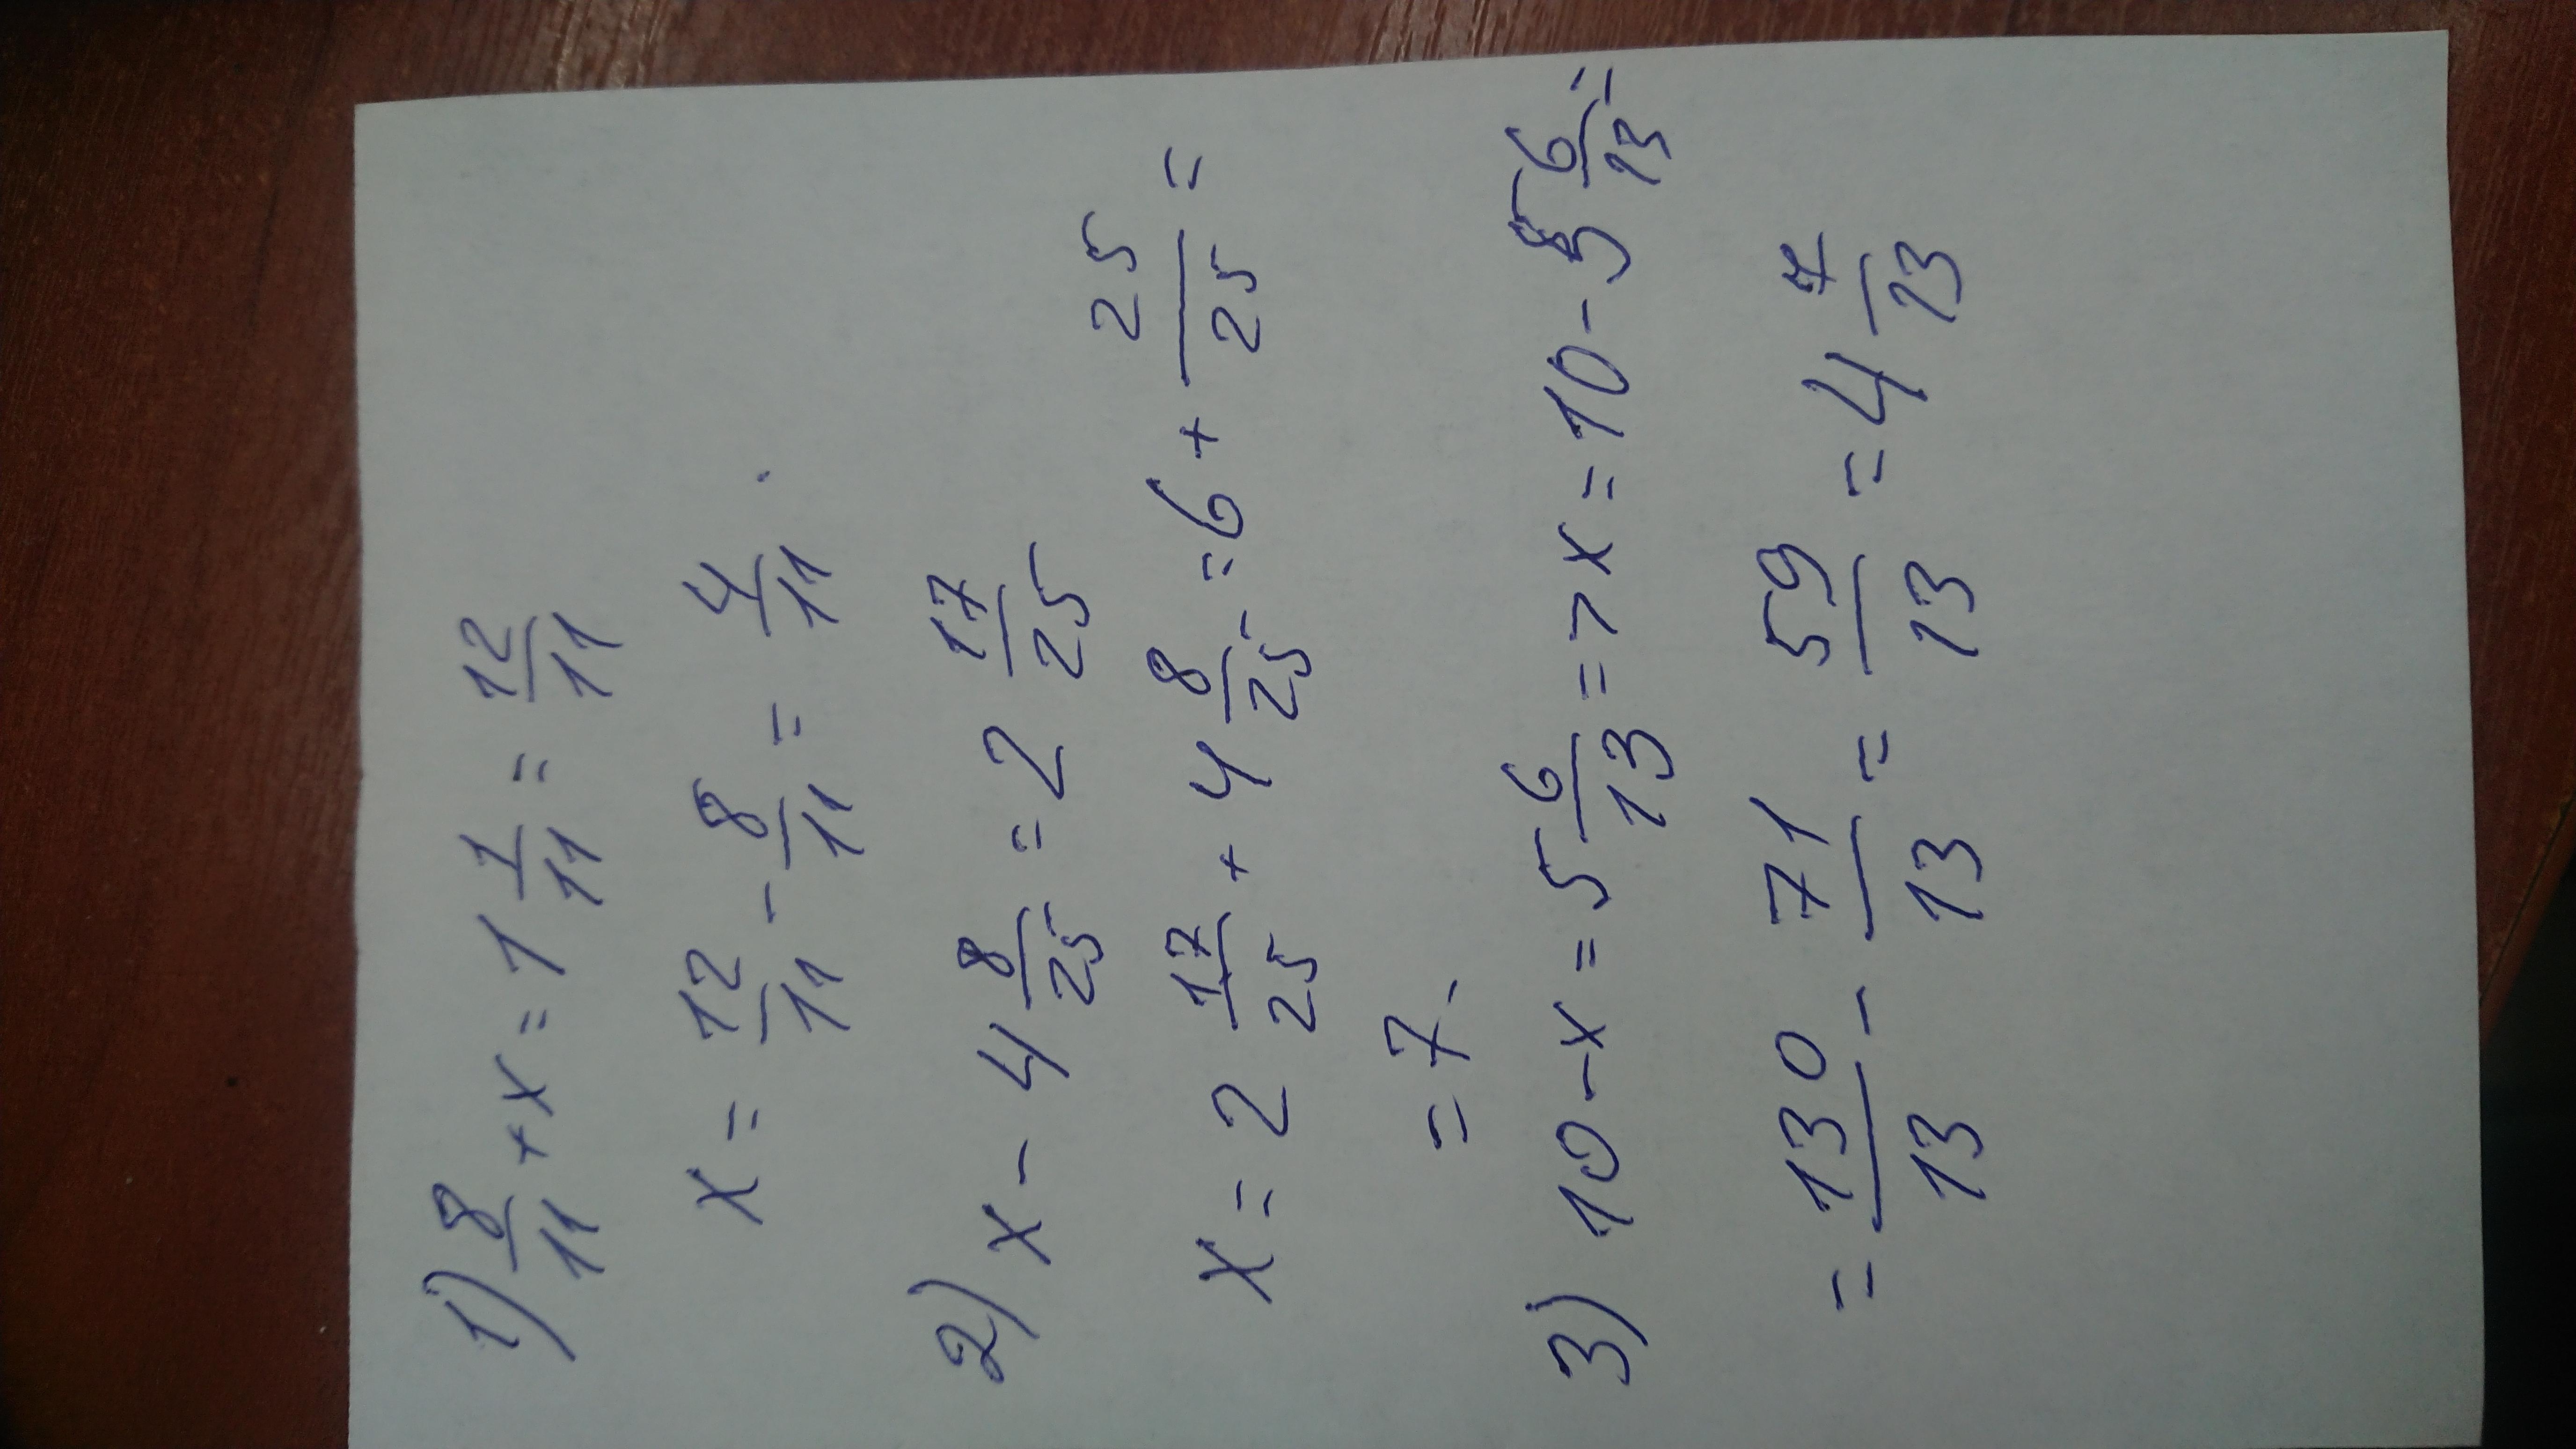 1) 8/11 + x = 1 1/11 = 12/11
x = 12/11 - 8/11 = 4/11.
2) x - 4 8/25 = 2 17/25
x = 2 17/25 + 4 8/25 = 6 + 25/25 =
= 7.
3) 10 - x = 5 6/13 => x = 10 - 5 6/13 =
= 130/13 - 71/13 = 59/13 = 4 7/13